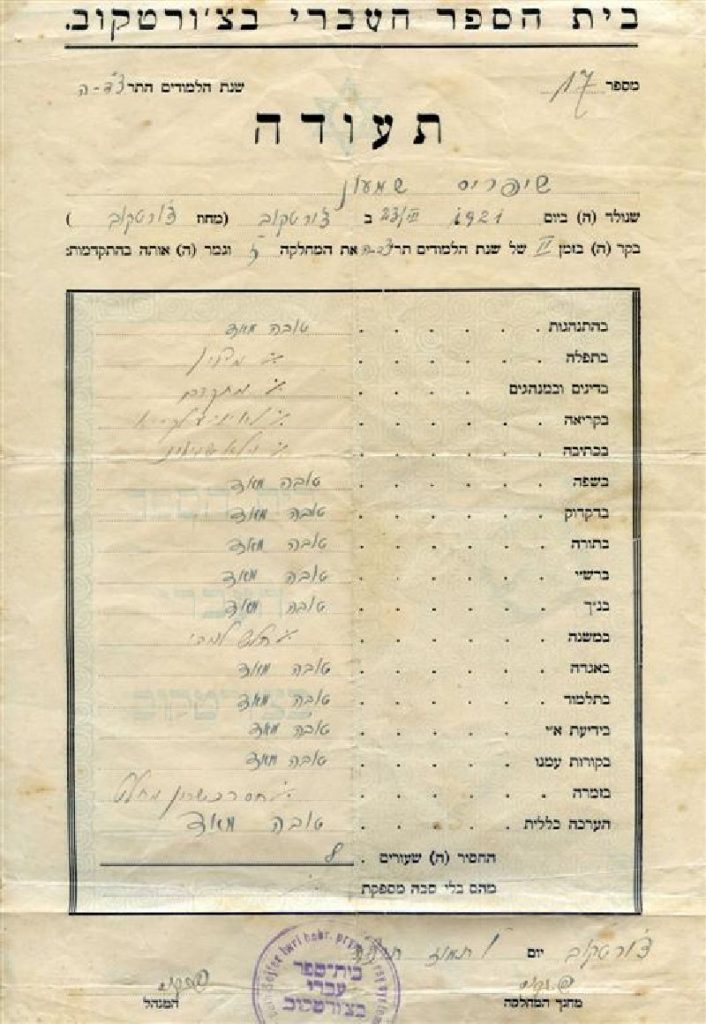 בית הספר העברי בצ׳ורטקוב.
מספר שנת הלמודים התר צ״ד-ה
תעודה
שיפריס שמעון
שנולד (ה) ביום 1921 23/III ב צ׳ורטקוב (מחוז צ׳ורטקוב)
בקר (ה) בזמן II של שנת הלמודים תרצ״ד-ה את המחלקה ז׳ וגמר (ה) אותה בהתקדמות:
בהתנהגות . . . . . . טובה מאד
בתפלה . . . . . .
בדינים ובמנהגים . . . . .
בקריאה . . . . . .
בכתיבה . . . . . .
בשפה . . . . . . טובה מאד
בדקדוק . . . . . . טובה מאד
בתורה . . . . . . טובה מאד
ברש״י . . . . . . טובה מאד
בנ״ך . . . . . . טובה מאד
במשנה . . . . . .
באגדה . . . . . . טובה מאד
בתלמוד . . . . . . טובה מאד
בידיעת א״י . . . . . . טובה מאד
בקורות עמנו . . . . . . טובה מאד
בזמרה . . . . . .
הערכה כללית . . . . . . טובה מאד
החסיר (ה) שעורים .
מהם בלי סבה מספקת
צ׳ורטקוב יום תמוז
בית-ספר
עברי
בצ׳ורטקוב
מחנך המחלקה המנהל